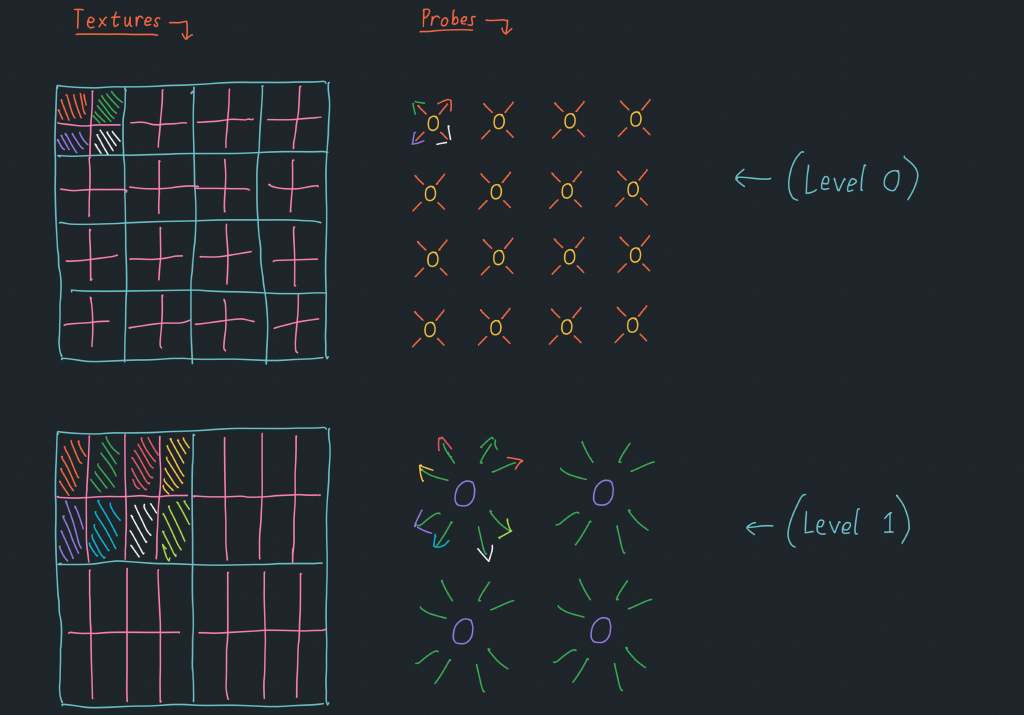 Textures
Probes
(Level 0)
(Level 1)